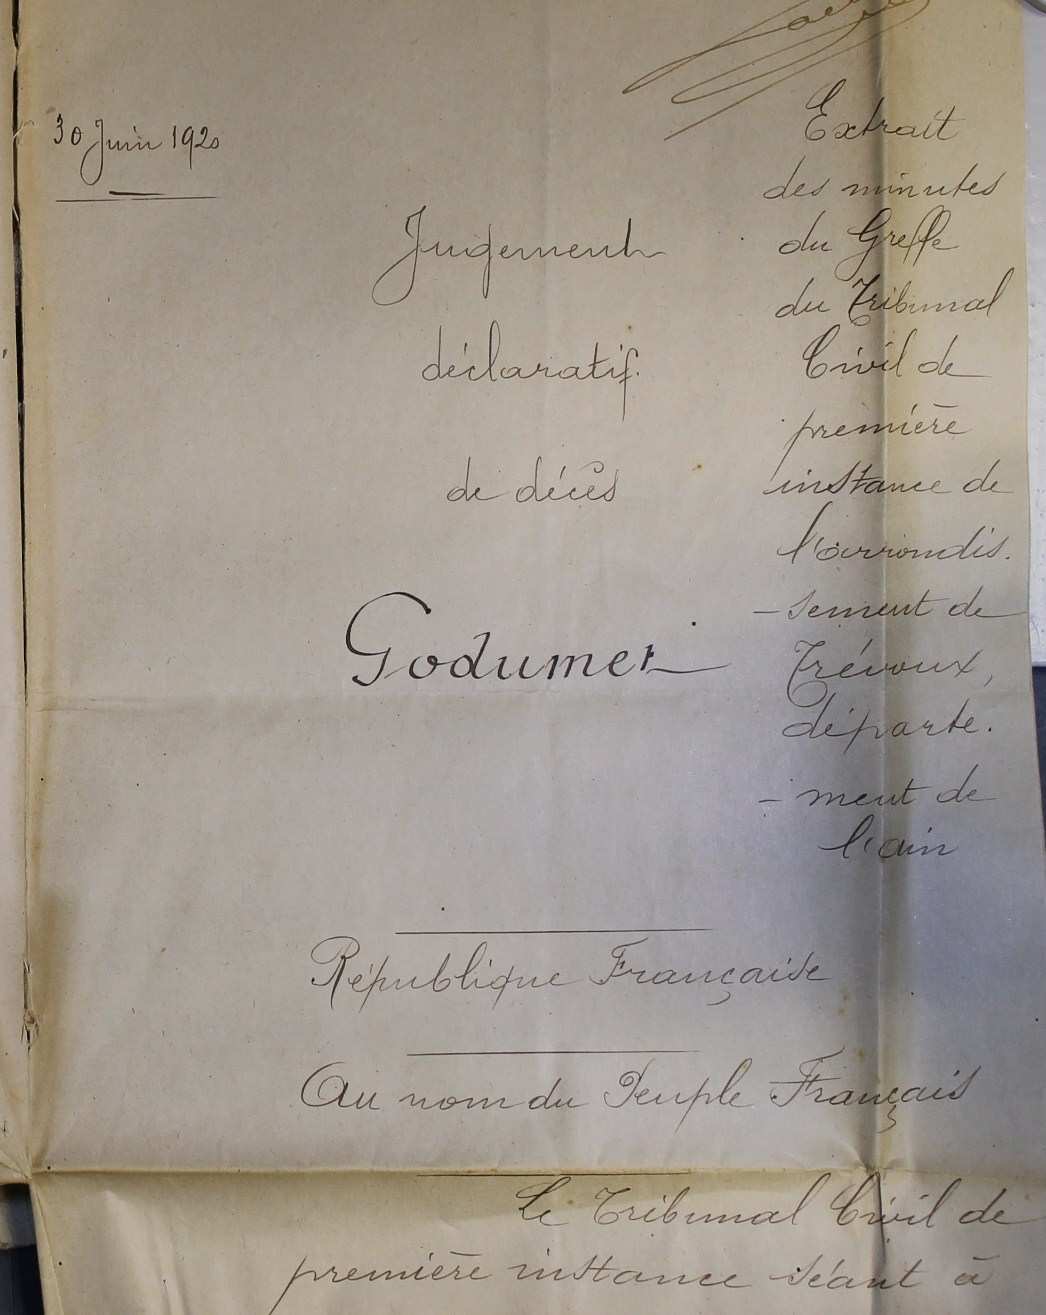 30 Juin 1920
Jugement
déclaratif.
de décès
Godumet
Extrait
des minutes
du Greffe
du Tribunal
Civil de
première
instance de
l'arrondis.
- sement de
Trévoux,
départe.
- ment de
l'ain
République Française
Au nom du Peuple Français
Le Tribunal Civil de
première instance séant à